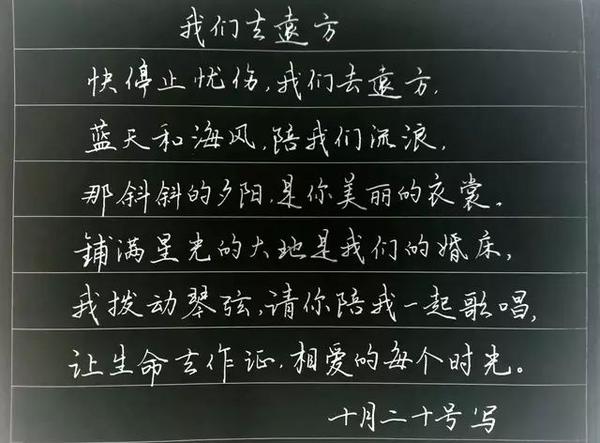 我们去遠方
快停止忧伤,我们去遠方,
蓝天和海风,陪我们流浪,
那斜斜的夕阳,是你美丽的衣裳。
铺满星光的大地是我们的婚床,
我拨动琴弦,请你陪我一起歌唱,
让生命去作证,相爱的每个时光。
十月二十号写